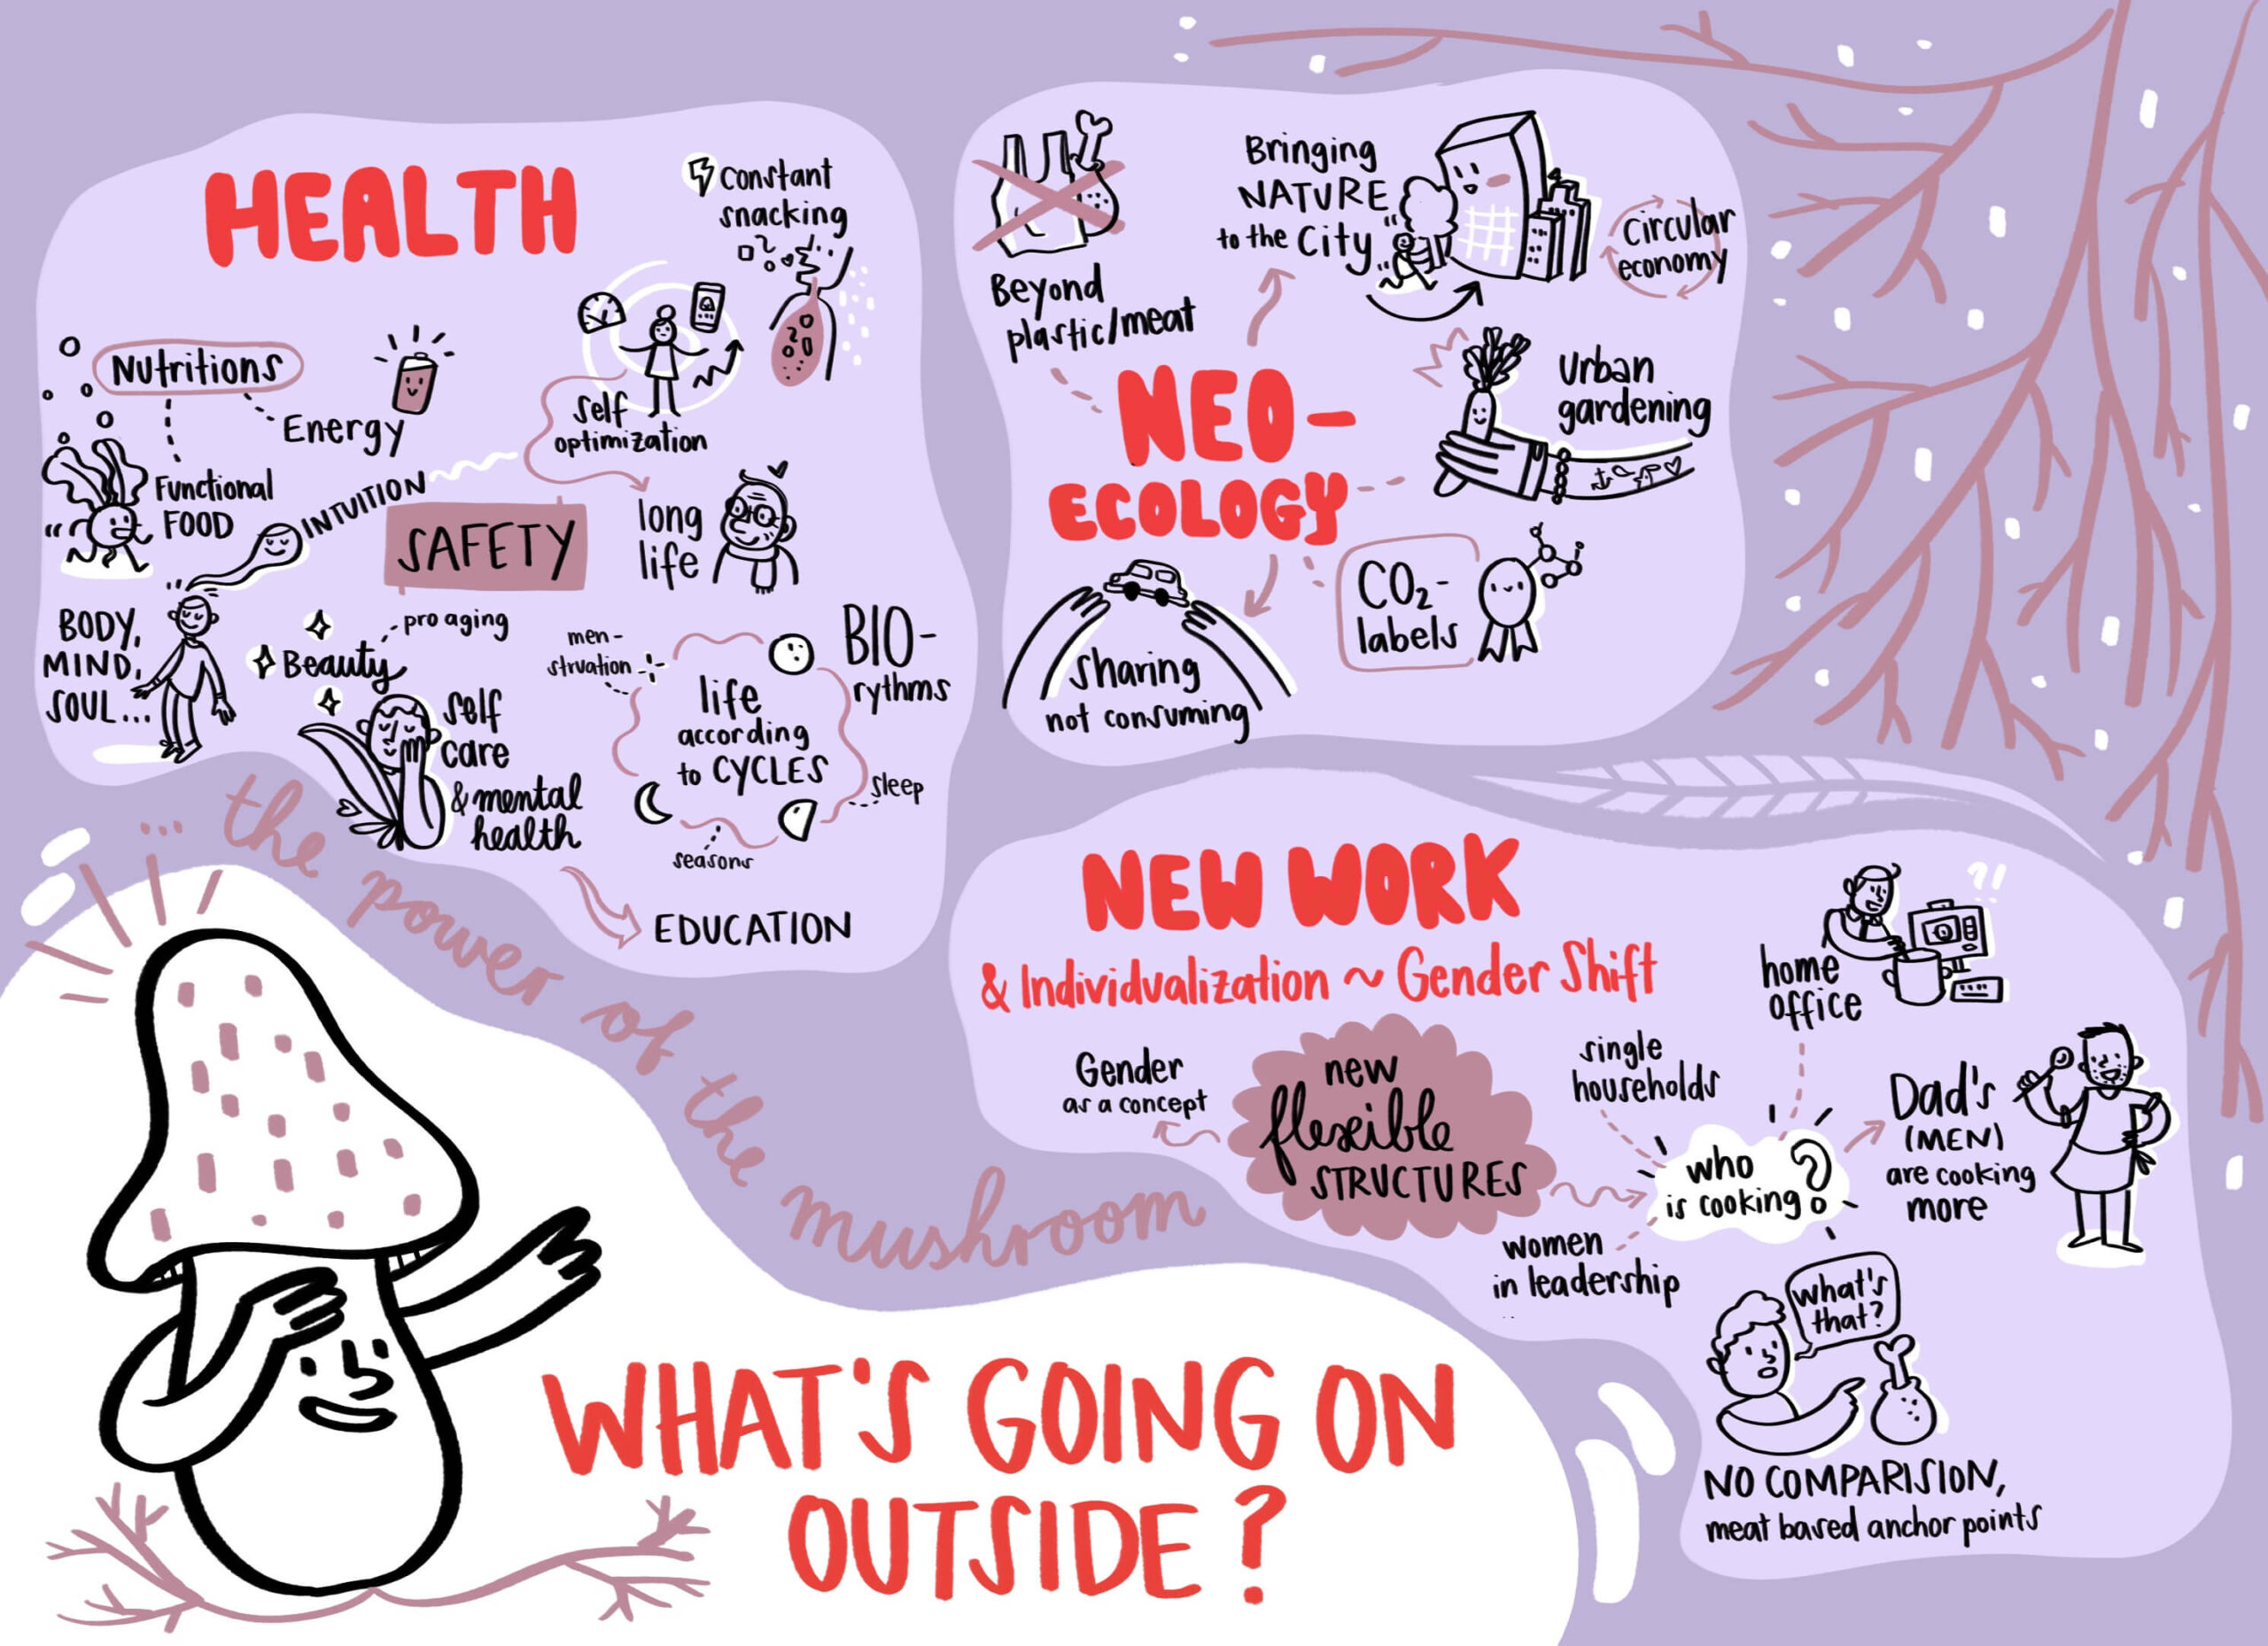 HEALTH
constant
snacking
Nutritions
Energy
Functional
FOOD
self
optimization
INTUITION
SAFETY
long
life
BODY,
MIND,
SOUL...
pro aging
Beauty
self
care
& mental
health
men-
struation
life
according
to CYCLES
BIO-
rythms
sleep
seasons
EDUCATION
Beyond
plastic/meat
Bringing
NATURE
to the City
Circular
economy
NEO-
ECOLOGY
Urban
gardening
CO₂-
labels
sharing
not consuming
NEW WORK
& Individualization ~ Gender Shift
Gender
as a concept
new
flexible
STRUCTURES
single
households
home
office
?!
who
is cooking?
Dad's
(MEN)
are cooking
more
women
in leadership
what's
that?
NO COMPARISION,
meat based anchor points
... the power of the mushroom
WHAT'S GOING ON
OUTSIDE?